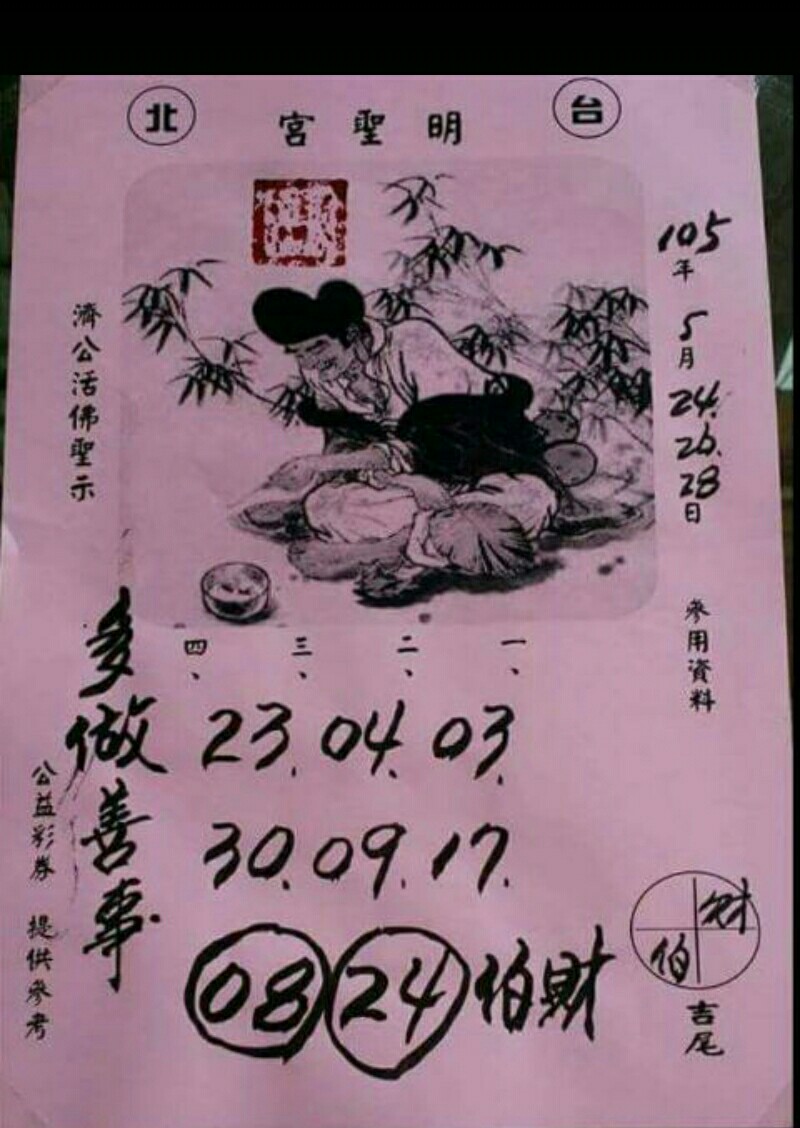 台北
明聖宮
105年5月24.26.28日
參用資料
濟公活佛聖示
一、二、三、四、
03.04.23
17.09.30
財伯24 08
多做善事
財
伯
吉尾
公益彩券 提供參考